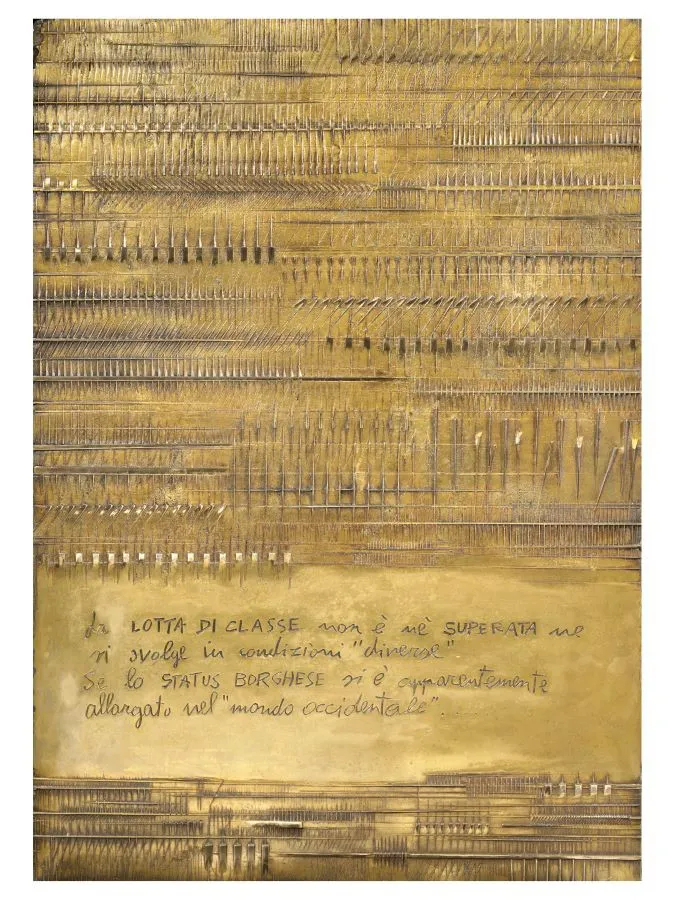 La LOTTA DI CLASSE non è nè SUPERATA ne
si svolge in condizioni "diverse"
Se lo STATUS BORGHESE si è apparentemente
allargato nel "mondo occidentale"....